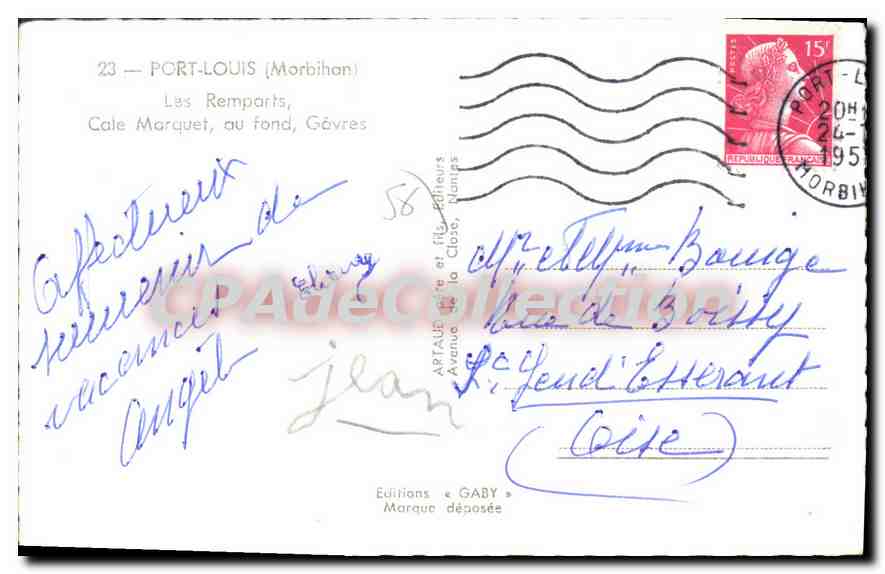 23 — PORT-LOUIS (Morbihan)
Les Remparts,
Cale Marquet, au fond, Gâvres
Affectueux
souvenir de
vacances
Angèle
58
jean
ARTAUD Père et fils, Editeurs
Avenue de la Close, Nantes
Editions « GABY »
Marque déposée
POSTES
15F
REPUBLIQUE FRANCAISE
PORT-L
20H
24-
195
MORBIH
Mr et
Rue de Boissy
St Leu d'Esserent
(Oise)
CPAdeCollection